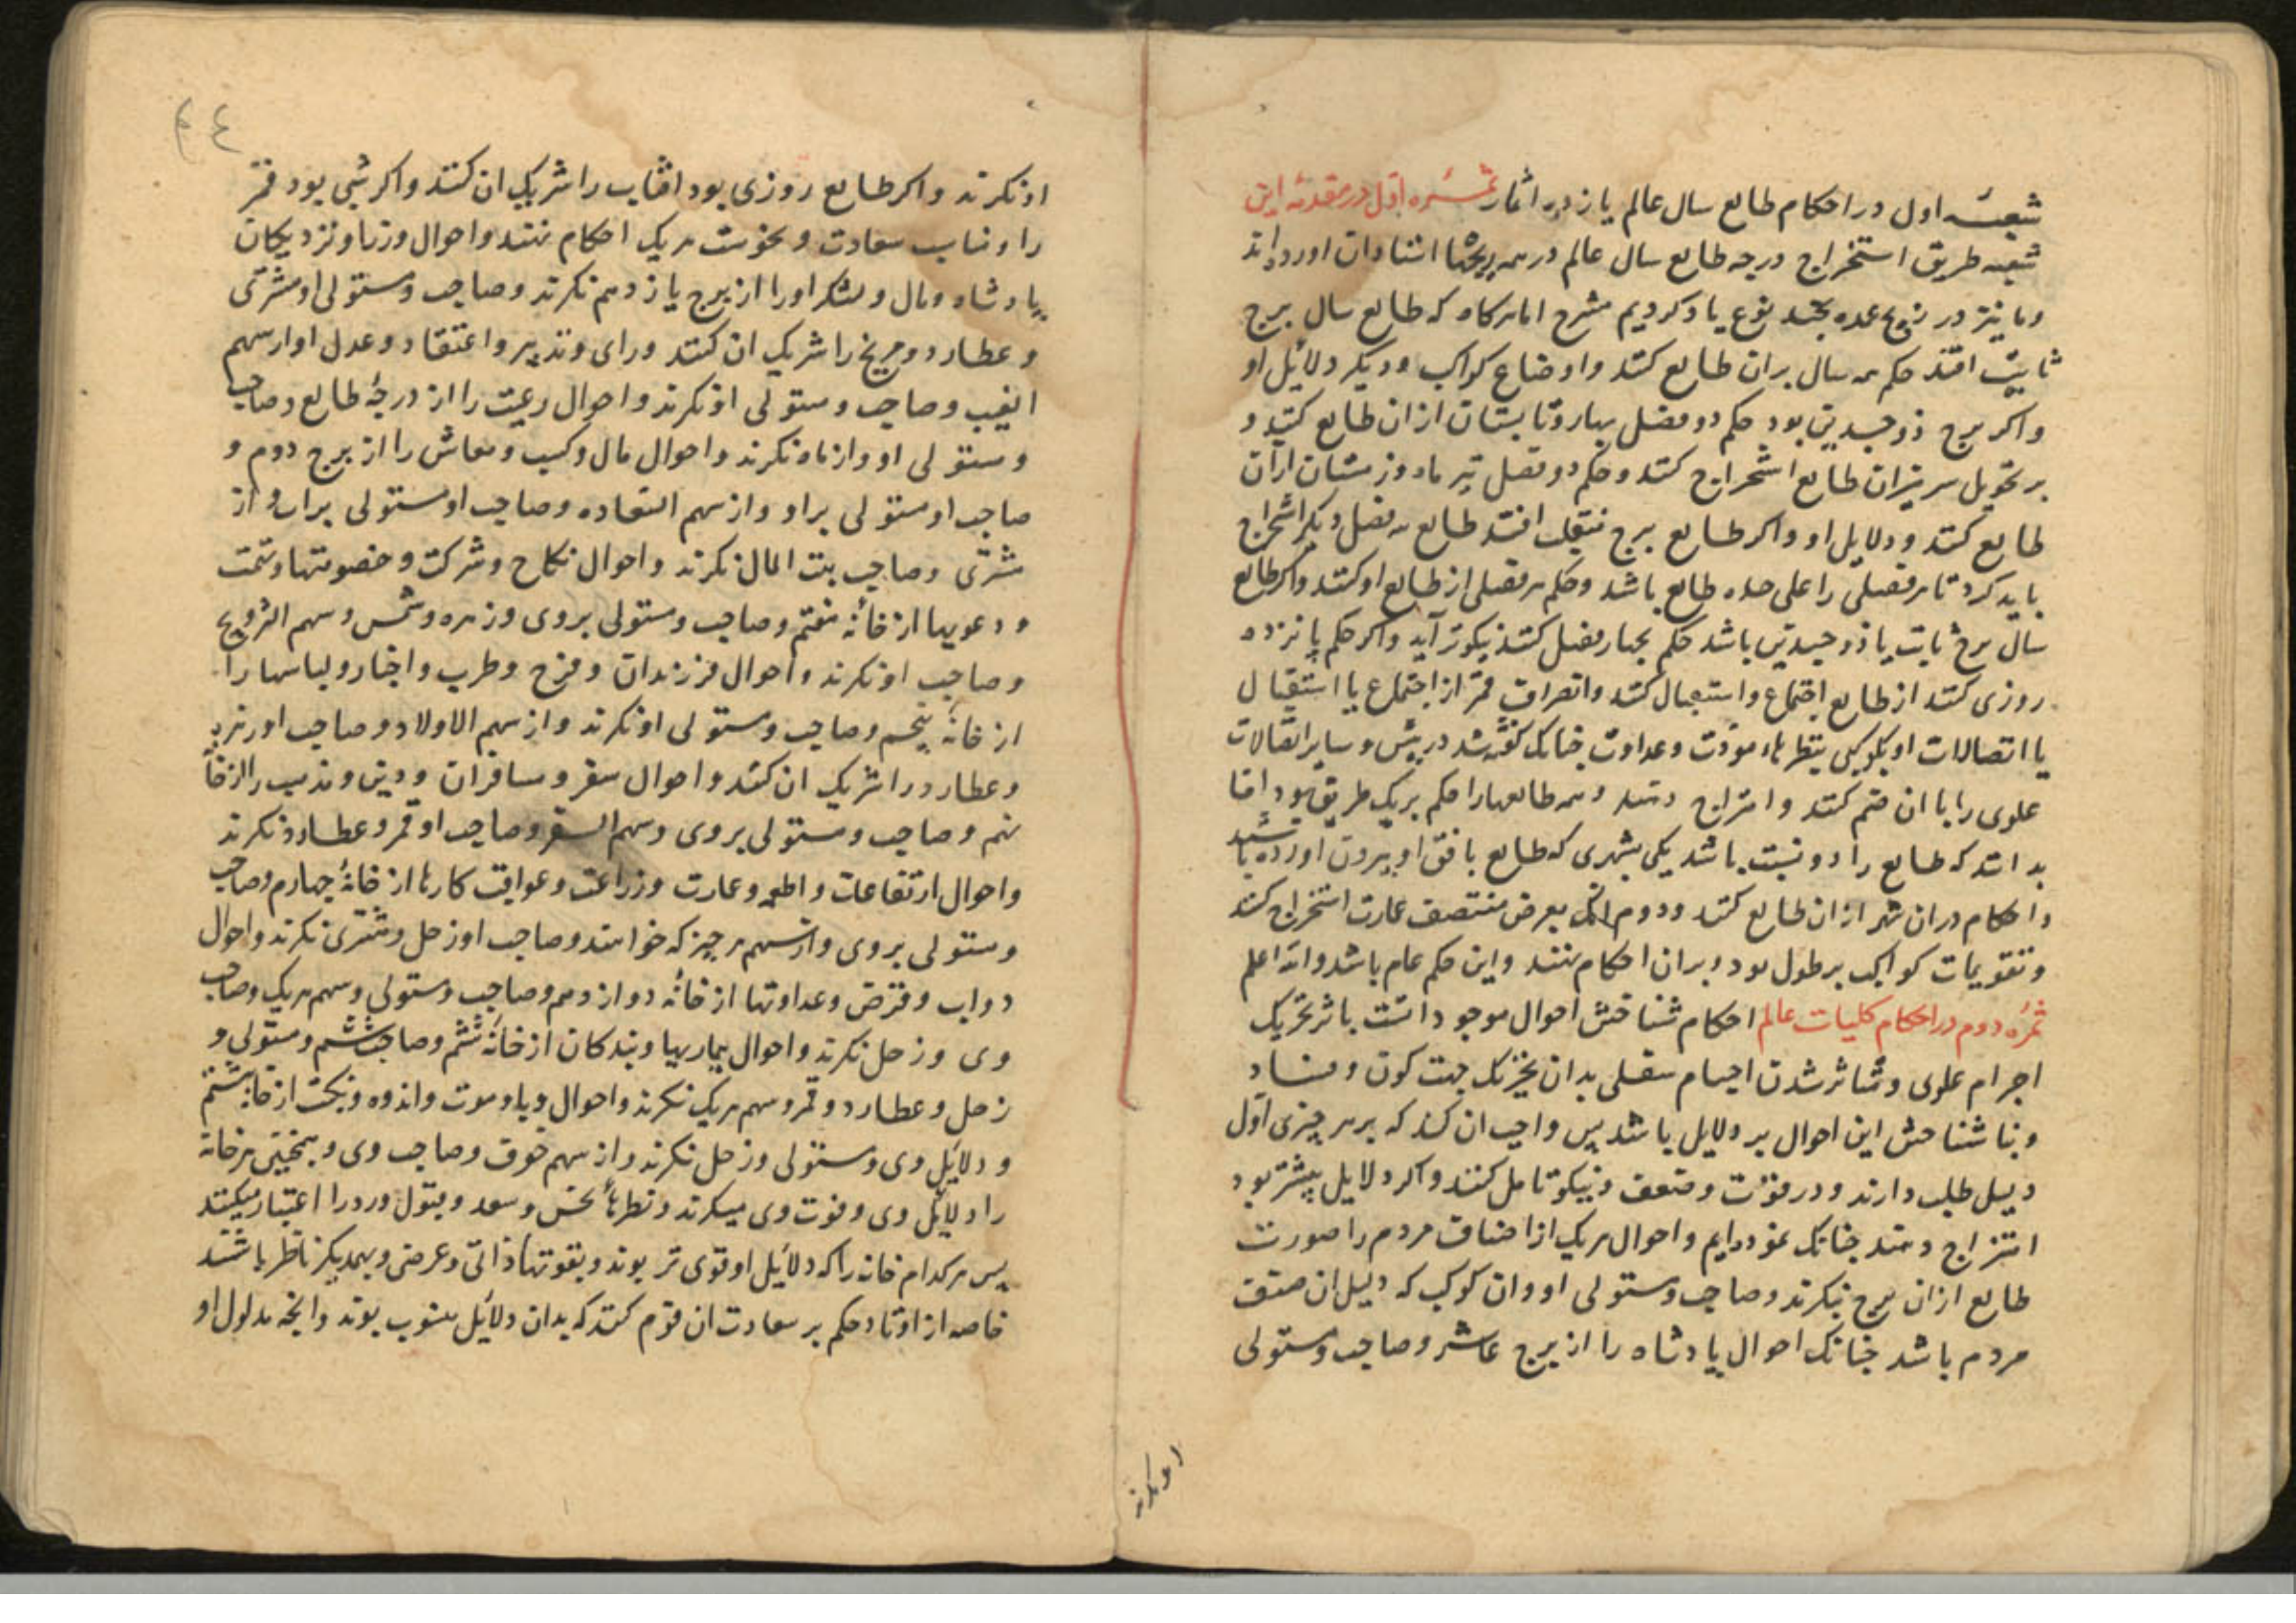 شعبهٔ اول در احکام طالع سال عالم یازده اثمار ثمرهٔ اول در مقدمهٔ این
شعبه طریق استخراج درجه طالع سال عالم در همه زیجها استادان اورده‌اند
وما نیز در زیج عمده بچند نوع یاد کردیم مشرح اما هرکاه که طالع سال برج
ثابت افتد حکم همه سال بران طالع کنند واوضاع کواکب ودیکر دلایل او
واکر برج ذوجسدین بود حکم دو فصل بهار وتابستان ازان طالع کنند و
بر تحویل میزان طالع استخراج کنند وحکم دو فصل تیرماه وزمستان ازان
طالع کنند ودلایل او واکر طالع برج منقلب افتد طالع هر فصل دیکر استخراج
باید کرد تا هر فصلی را علی حده طالع باشد وحکم هر فصلی از طالع او کنند واکر طالع
سال برج ثابت یا ذوجسدین باشد حکم بچهار فصل کنند نیکوتر آید واکر حکم پانزده
روزی کنند از طالع اجتماع واستقبال کنند وانصراف قمر از اجتماع یا استقبال
یا اتصالات او بکوکبی بنظرهاء مودت وعداوت چنانک کفته شد در پیش وسایر اتصالات
علوی را با ان ضم کنند وامتزاج دهند وهمه طالعها را حکم بر یک طریق بود اما
بدانند که طالع را دو نسبت باشد یکی بشهری که طالع بافق او بیرون اورده باشند
واحکام دران شهر ازان طالع کنند ودوم انک بعرض منتصف عمارت استخراج کنند
وتقویمات کواکب بر طول بود وبران احکام نهند واین حکم عام باشد والله اعلم
ثمرهٔ دوم در احکام کلیات عالم احکام شناختن احوال موجوداتست باثر تحریک
اجرام علوی ومتاثر شدن اجسام سفلی بدان تحریک جهت کون وفساد
وبنا شناختن این احوال بر دلایل باشد پس واجب ان کند که بر هر چیزی اول
دلیل طلب دارند ودر قوت وضعف او نیکو تامل کنند واکر دلایل بیشتر بود
امتزاج دهند چنانک نموده‌ایم واحوال هر یک از اصناف مردم را صورت
طالع ازان برج نکرند وصاحب ومستولی او وان کوکب که دلیل ان صنف
مردم باشد چنانک احوال پادشاه را از برج عاشر وصاحب ومستولی
او نکرند
٤٤
او نکرند واکر طالع روزی بود افتاب را شریک ان کنند واکر شبی بود قمر
را ومناسب سعادت ونحوست هر یک احکام نهند واحوال وزرا ونزدیکان
پادشاه ومال ولشکر او را از برج یازدهم نکرند وصاحب ومستولی او ومشتری
وعطارد ومریخ را شریک ان کنند ورای وتدبیر واعتقاد وعدل او از سهم
الغیب وصاحب ومستولی او نکرند واحوال رعیت را از درجهٔ طالع وصاحب
ومستولی او واز ماه نکرند واحوال مال وکسب ومعاش را از برج دوم و
صاحب او مستولی براو واز سهم السعاده وصاحب او مستولی بران واز
مشتری وصاحب بیت المال نکرند واحوال نکاح وشرکت وخصومتها وتهمت
ودعویها از خانهٔ هفتم وصاحب ومستولی بروی وزهره وشمس وسهم التزویج
وصاحب او نکرند واحوال فرزندان وفرح وطرب واخبار ولباسها را
از خانهٔ پنجم وصاحب ومستولی او نکرند واز سهم الاولاد وصاحب او وزهره
وعطارد را شریک ان کنند واحوال سفر ومسافران ودین ومذهب را از خانهٔ
نهم وصاحب ومستولی بروی وسهم السفر وصاحب او قمر وعطارد نکرند
واحوال ارتفاعات واطعمه وعمارت وزراعت وعواقب کارها از خانهٔ چهارم وصاحب
ومستولی بروی واز سهم هر چیز که خواهند وصاحب او زحل ومشتری نکرند واحوال
دواب وقرض وعداوتها از خانهٔ دوازدهم وصاحب ومستولی وسهم هر یک وصاحب
وی وزحل نکرند واحوال بیماریها وبندکان از خانهٔ ششم وصاحب ششم ومستولی و
زحل وعطارد وقمر وسهم هر یک نکرند واحوال وبا وموت واندوه ونکبت از خانهٔ هشتم
ودلایل وی ومستولی وزحل نکرند واز سهم خوف وصاحب وی وهمچنین هر خانه
را ودلایل وی وقوت وی مینکرند ونظرهاء نحس وسعد وقبول ورد را اعتبار میکنند
پس هر کدام خانه را که دلایل او قوی تر بوند وبقوتهاء ذاتی وعرضی وبهمدیکر ناظر باشند
خاصه از اوتاد حکم بر سعادت ان قوم کنند که بدان دلایل منسوب بوند وانچه مدلول او